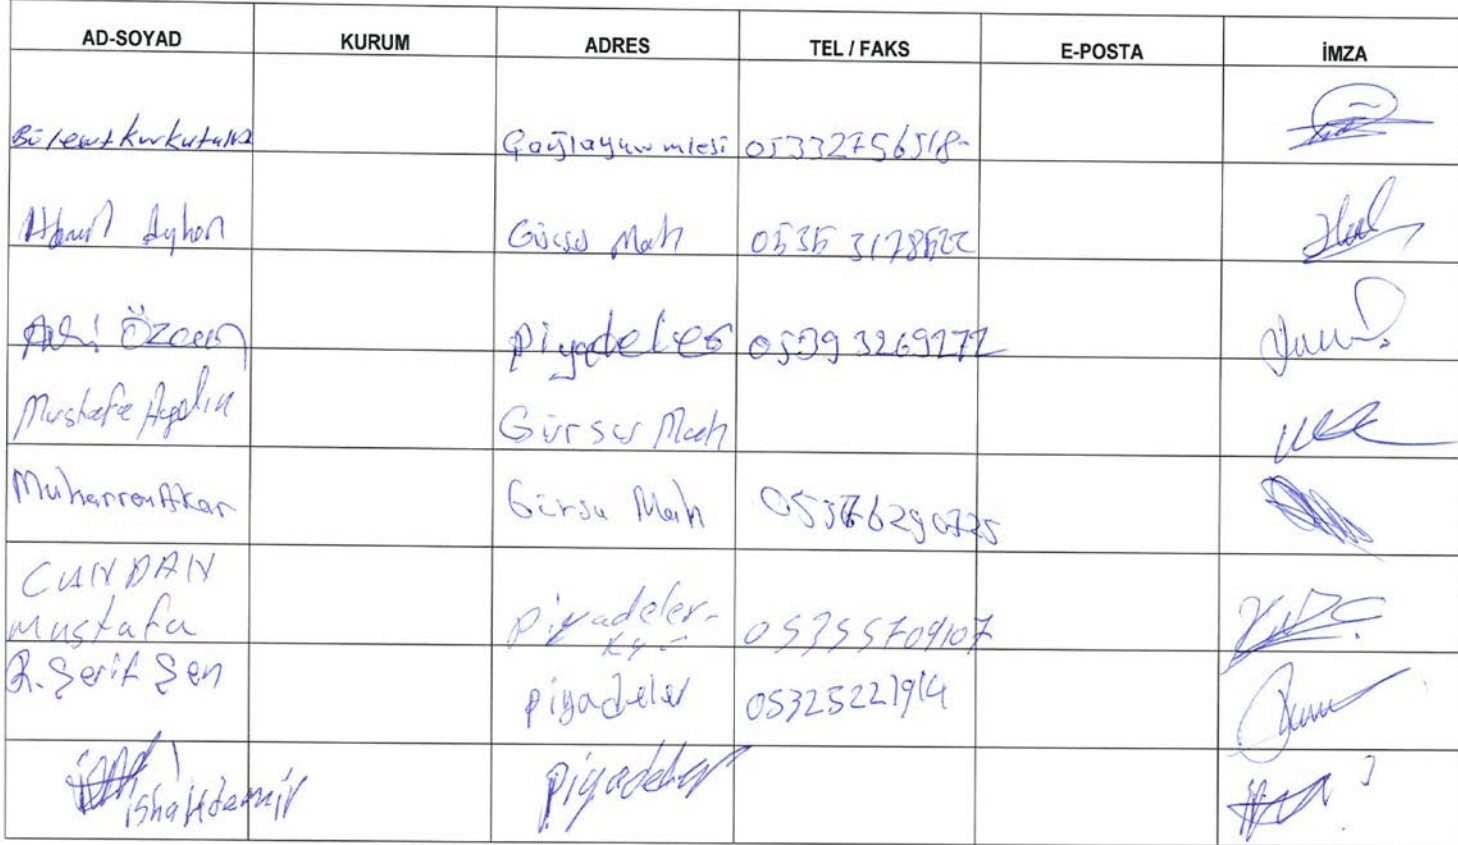 AD-SOYAD KURUM ADRES TEL / FAKS E-POSTA İMZA
Bülent Çağlayan mlesi 05332756518-
Ayhan Gürsu Mah 0535 3178522
Özcan Piyadeler 0539 3269272
Mustafa Aydın Gürsu Mah
Muharrem Akar Gürsu Mah
CUNDAN
Mustafa Piyadeler- 05355709107
Köyü
R. Şerif Şen piyadeler 05325221914
İshak demir piyadeler